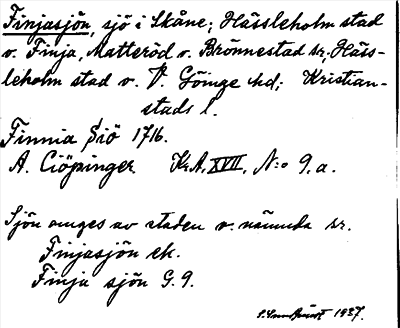 Finjasjön, sjö i Skåne; Hässleholm stad
o. Finja, Matteröd o. Brönnestad sr, Häss-
leholm stad o. V. Göinge hd; Kristian-
stads l.
Finnia Siö 1716.
A. Ciöpinger. Kr.A. XVII, N:o 9.a.
Sjön omges av staden o. nämnda sr.
Finjasjön ek.
Finja sjön G. 9.
1937.